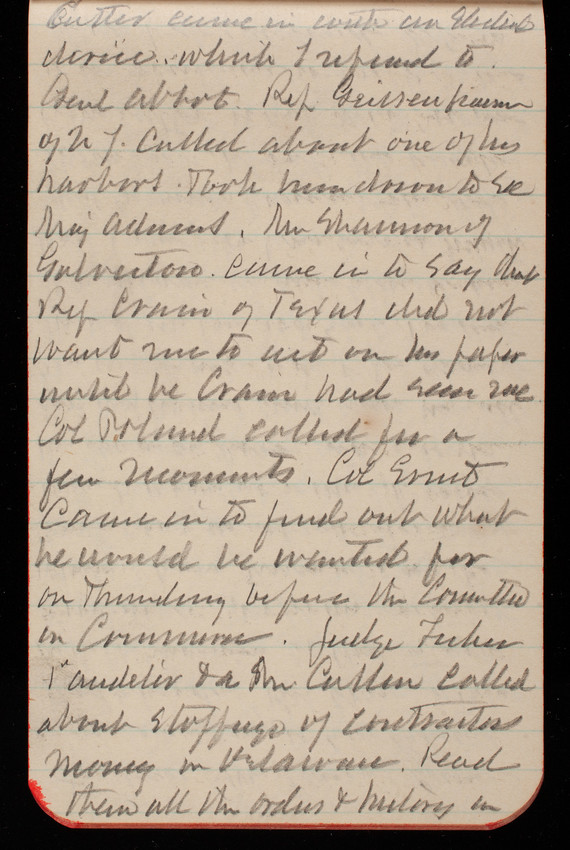 Cutter came in with an Electric
device. which I referred to.
Genl Abbot. Rep Geissenhainer
of N J. called about one of his
harbors. Took him down to see
Maj Adams. Mr Shannon of
Galveston. came in to say that
Rep Crain of Texas did not
want me to act on his paper
until he Crain had seen me
Col Poland called for a
few moments. Col Ernst
Came in to find out what
he would be wanted for
on Thursday before the Committee
on Commerce. Judge Fisher
1st auditor & a Mr Cullen called
about Stoppage of contractors
money in Delaware. Read
them all the orders & history in